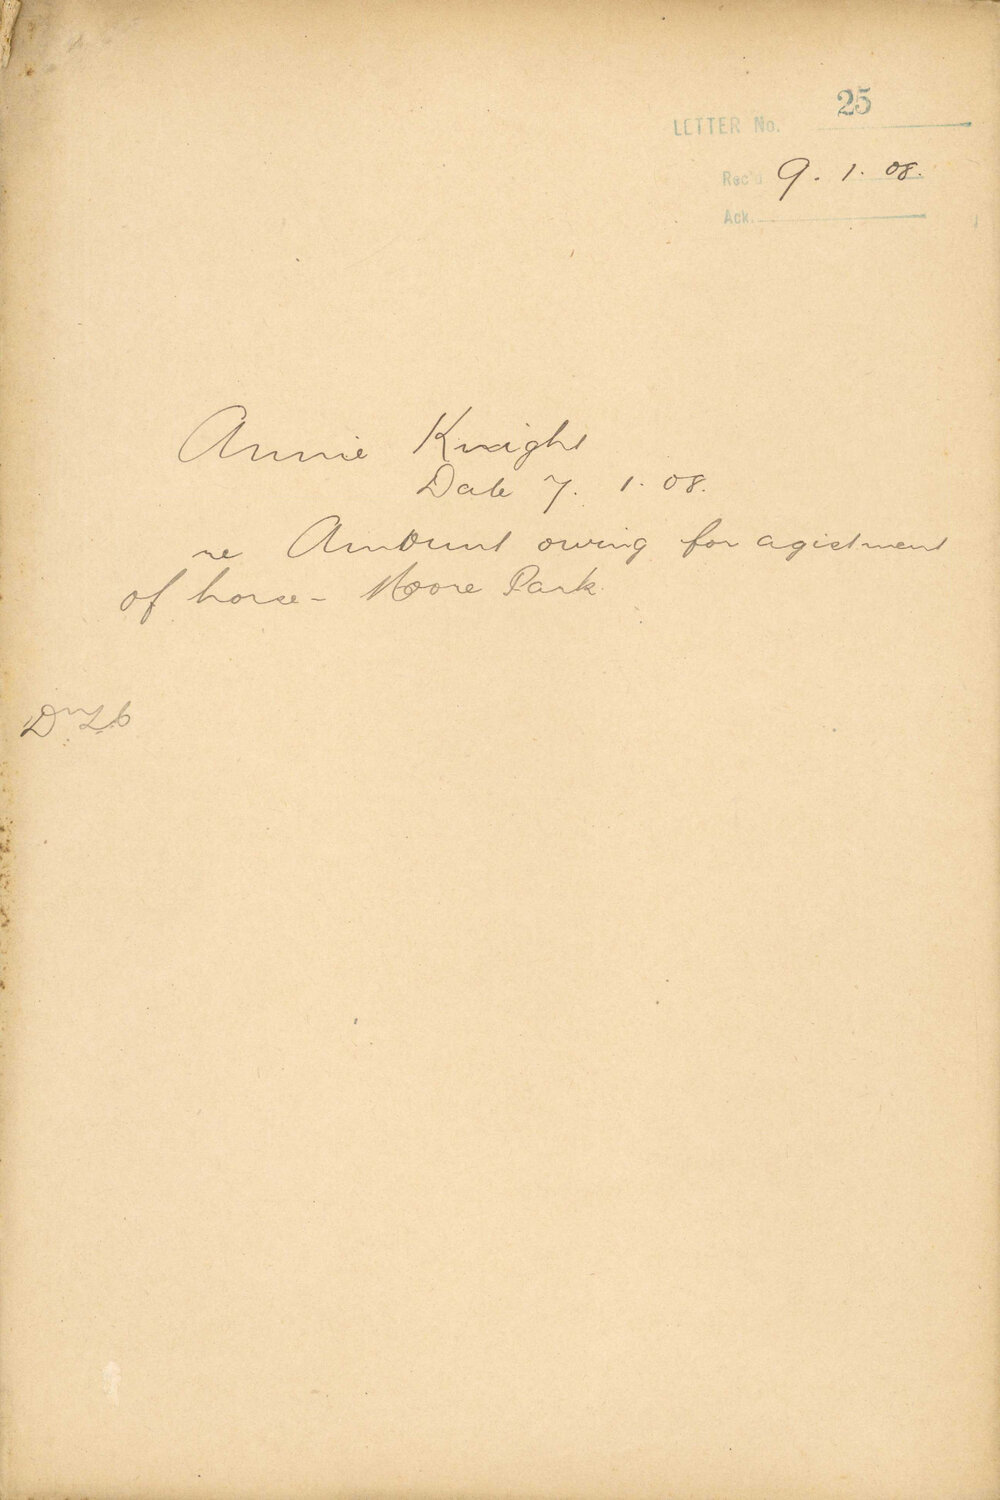 LETTER No. 25
Rec'd 9. 1. 08.
Ack.
Annie Knight
Date 7. 1. 08.
re Amount owing for agistment
of horse - Moore Park